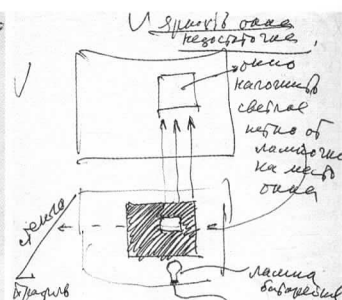 И яркость окна
недостаточна,
окно
наложить
светлое
пятно от
лампочки
на место
окна
стекло
лампа
батарейка